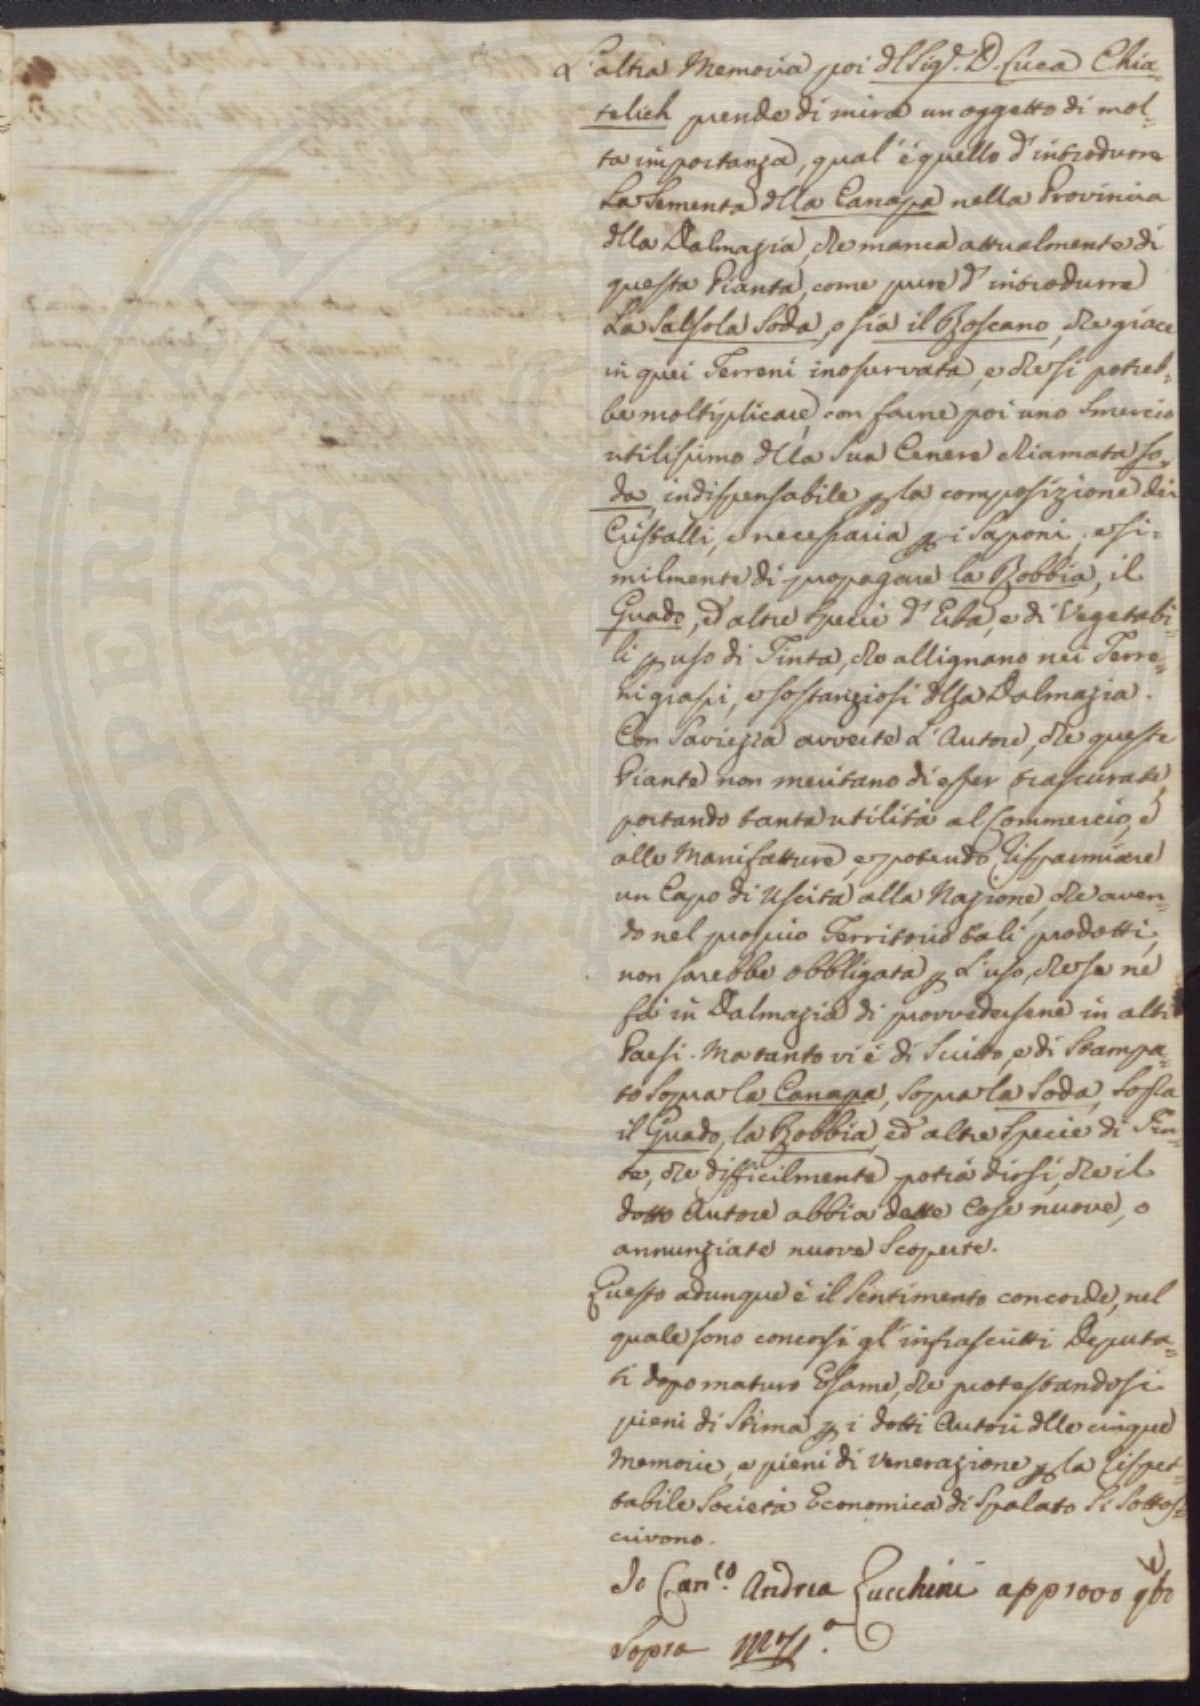 L'altra Memoria poi dl Sigr. D. Luca Chia=
telich prende di mira un oggetto di mol=
ta importanza, qual' é quello d' introdurre
La Sementa dlla Canapa nella Provincia
dlla Dalmazia, che manca attualmente di
questa Pianta, come pure d' introdurre
La Salsola Soda, o sia il Boscano, che giace
in quei Terreni inosservata, e che si potreb=
be moltiplicare, con farne poi uno Smercio
utilissimo dlla Sua Cenere chiamata So=
da, indispensabile p la composizione dei
Cristalli, e necessaria p i Saponi; e si=
milmente di propagare la Robbia, il
Guado, ed altre Specie d' Erba, e di Vegetabi=
li p uso di Tinta, che allignano nei Terre=
ni grassi, e sostanziosi dlla Dalmazia.
Con Saviezza avverte L' Autore, che queste
Piante non meritano di esser trascurate,
portando tanta utilità al Commercio, e
alle Manifatture, e potendo risparmiare
un Capo di Uscita alla Nazione, che aven=
do nel proprio Territorio tali prodotti,
non sarebbe obbligata p L' uso, che se ne
fà in Dalmazia di provvedersene in altri
Paesi. Ma tanto vi é di Scritto, e di Stampa=
to sopra la Canapa, sopra la Soda, sopra
il Guado, la Robbia, ed altre Specie di Tin=
te, che difficilmente potrà dirsi, che il
dotto Autore abbia dette Cose nuove, o
annunziate nuove Scoperte.
Questo adunque é il Sentimento concorde, nel
quale sono concorsi gl' infrascritti Deputa=
ti dopo maturo Esame, che protestandosi
pieni di Stima p i dotti Autori dlle cinque
Memorie, e pieni di Venerazione p la rispet=
tabile Società Economica di Spalato Si Sottos=
crivono.
Io Canco. Andrea Zucchini approvo qto
Sopra